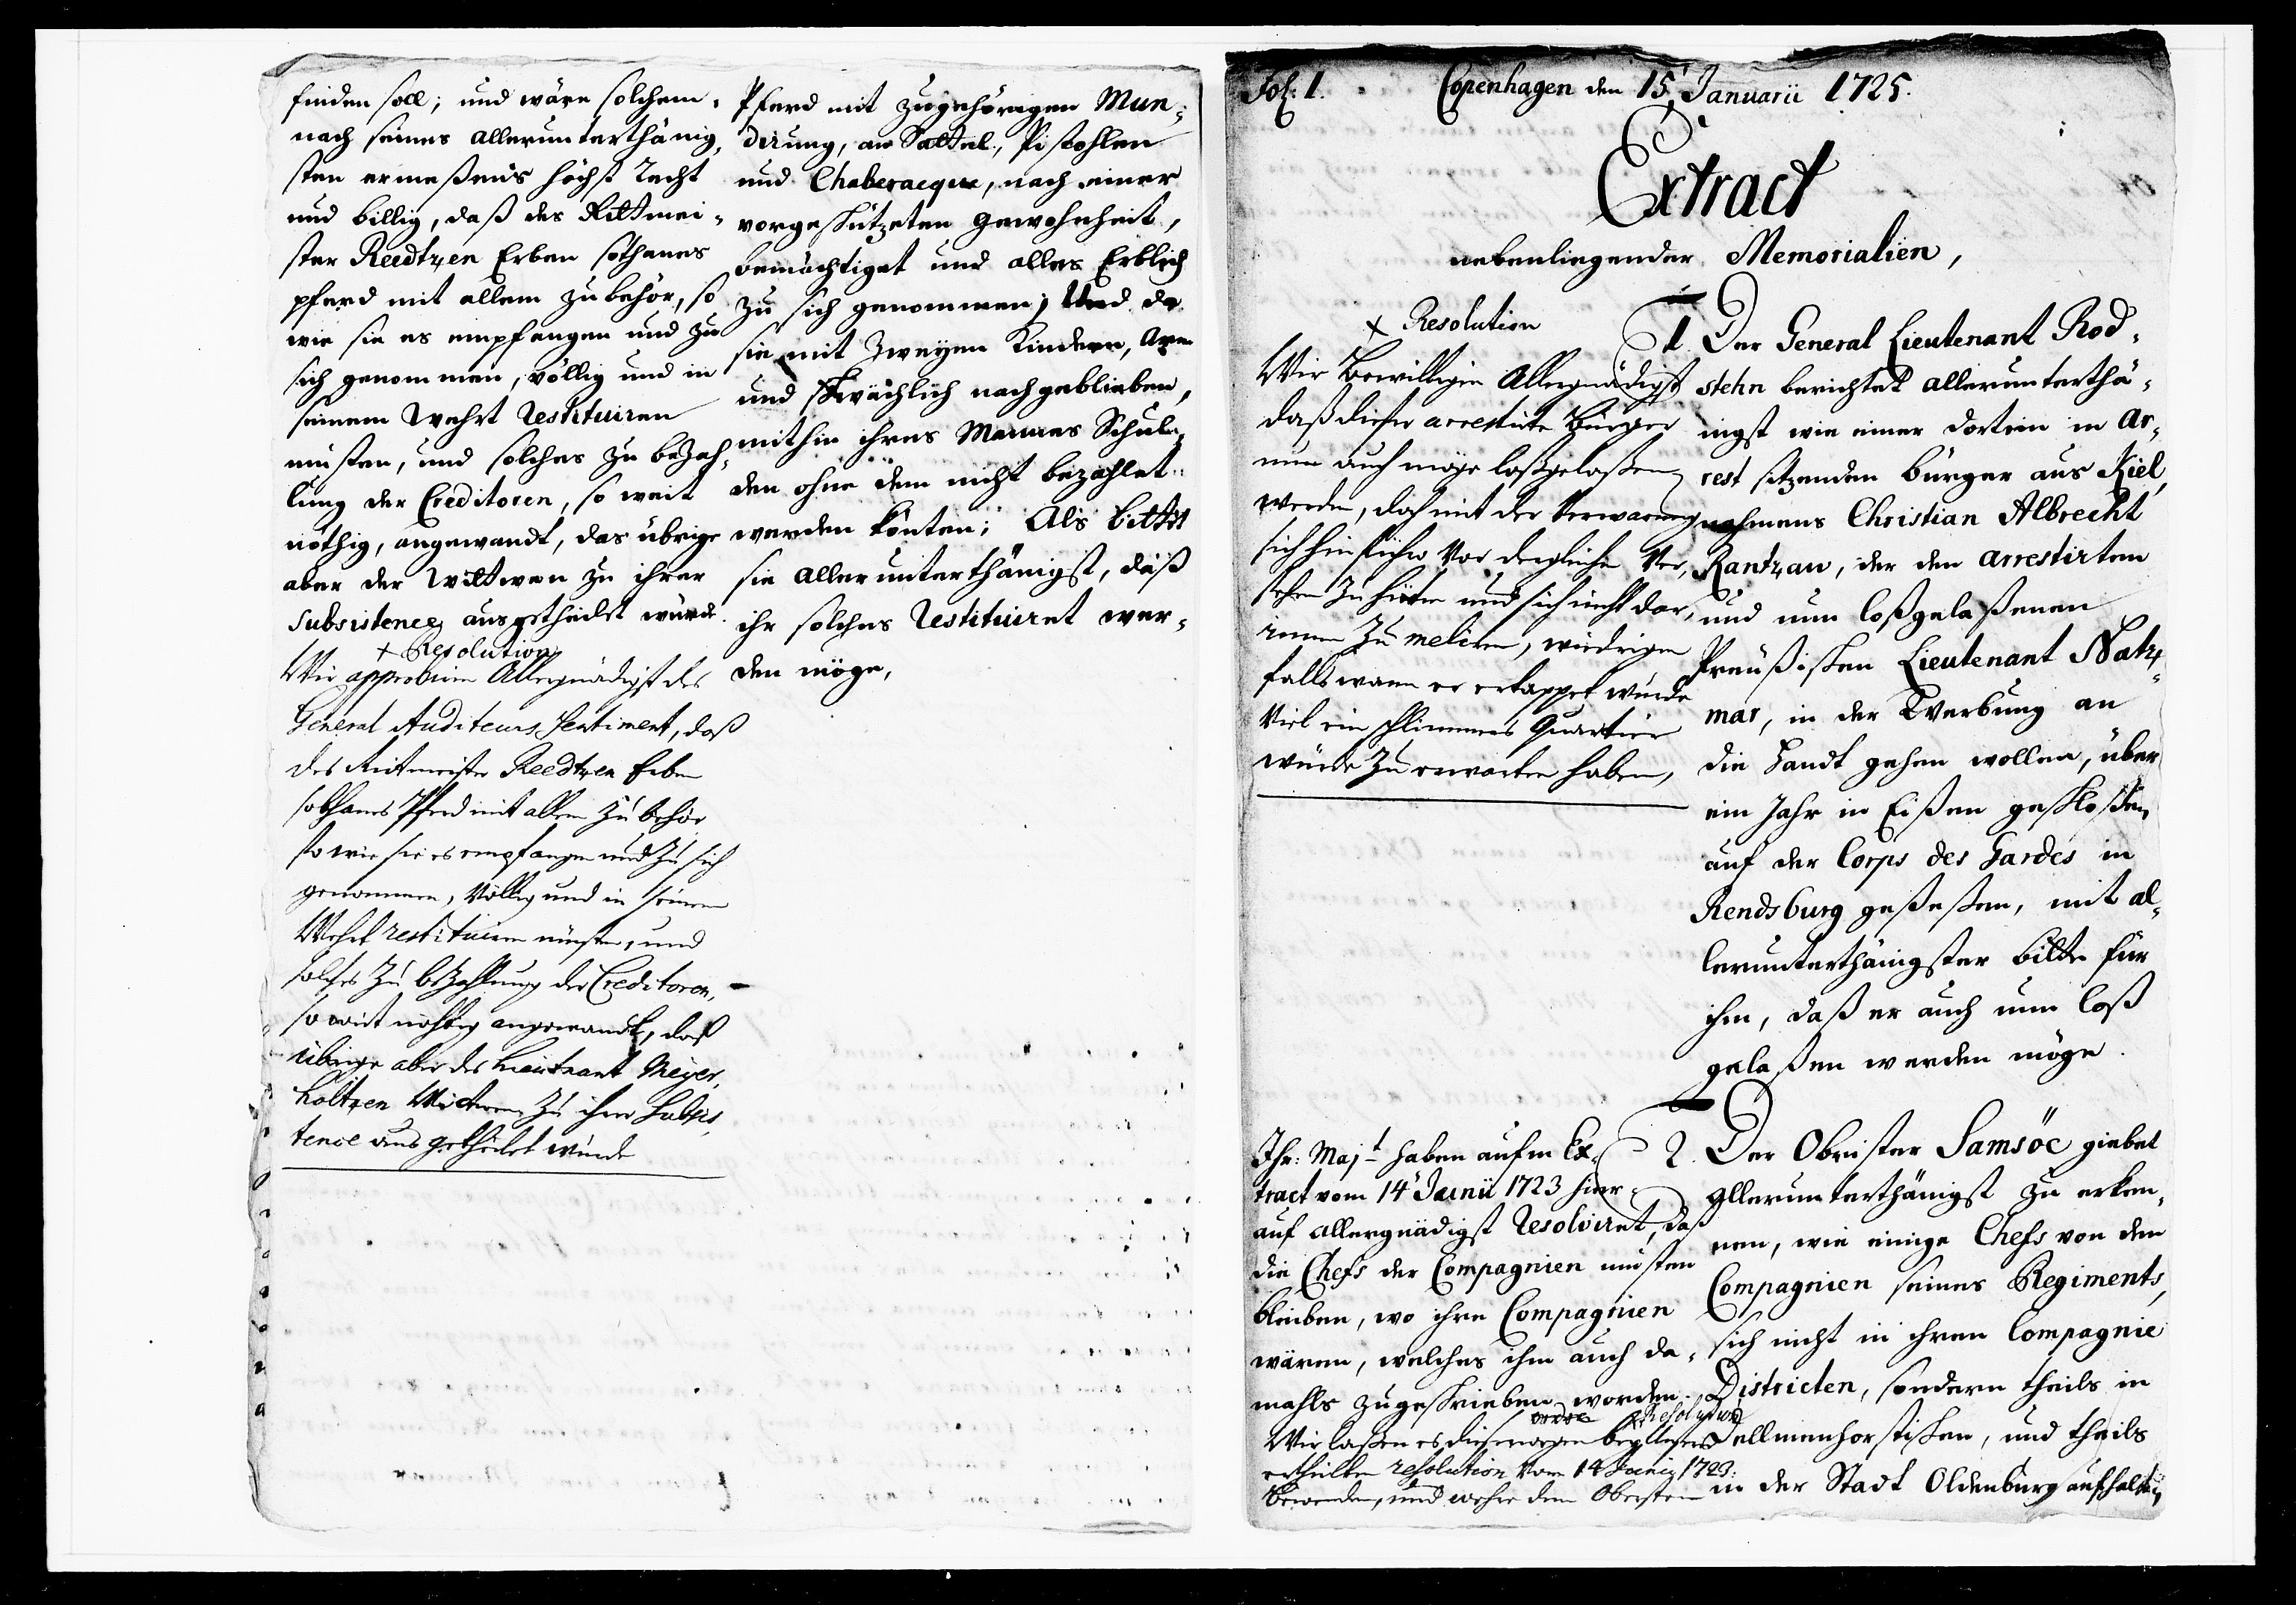 finden soll; und wäre solchem-
nach seines allerunterthänig-
sten ermeßens höchst recht
und billig, daß des Rittmei-
ster Reedtzen Erben sothanes
pferd mit allem zubehör, so
wie sie es empfangen und zu
sich genommen, völlig und in
seinem Wehrt restituiren
müsten, und solches zu bezah-
lung der Creditoren, so weit
nöthig, angewandt, das übrige
aber der Wittwen zu ihrer
Subsistence ausgetheilet würde.
+ Resolution
Wir approbiren Allergnädigst des
General Auditeurs Sentiment, daß
des Rittmeister Reedtzen Erben
sothanes Pferd mit allem Zubehör
so wie sie es empfangen und zu sich
genommen, völlig und in seinem
Wehrt restituiren müsten, und
solches zu bezahlung der Creditoren,
so weit nöhtig angewandt, daß
übrige aber des Lieutnant Meyer-
holtzen Witwen zu ihrer Subsis-
tence aus getheilet würde
Pferd mit zugehörigen Mun-
dirung, an Sattel, Pistohlen
und Chaberacque, nach einer
vorgeschützeten gewohnheit,
bemächtiget und alles Erblich
zu sich genommen; Und da
sie mit zweyen Kindern, arm
und schwächlich nachgeblieben,
mithin ihres Mannes Schul-
den ohne dem nicht bezahlet
werden könten; Als bittet
sie allerunterthänigst, daß
ihr solches restituiret wer-
den möge,
Fol: 1. Copenhagen den 15t Januarii 1725.
Extract
nebenliegender Memorialien,
+ Resolution
Wir Bewilligen Allergnädigst
daß dieser arrestirte Bürger
nun auch möge loßgelaßen
werden, doch mit der Verwarnung
sich hinführo vor dergleichen Ver-
sehen zu hüten und sich nicht dar-
innen zu meliren, wiedrigen
falls wann er ertappet würde
Viel ein schlimmers Quartier
würde zu erwarten haben,
1. Der General Lieutenant Rod-
stehn berichtet allerunterthä-
nigst wie einer dortein in Ar-
rest sitzenden bürger aus Kiel,
nahmens Christian Albrecht
Rantzau, der den arrestirten
und nun loßgelaßenen
Preüßischen Lieutenant Natz-
mar, in der Werbung an
die Handt gehen wollen, über
ein Jahr in Eißen geschloßen
auf der Corps des Gardes in
Rendsburg geseßen, mit al-
lerunterthänigster bitte für
ihm, daß er auch nun loß
gelaßen werden möge.
Ihr: Majt haben aufm Ex-
tract vom 14t Junii 1723 hier-
auf allergnädigst resolviret, daß
die Chefs der Compagnien müsten
bleiben, wo ihre Compagnien
wären, welches ihm auch da-
mahls zugeschrieben worden.
+ Resolution
Wir laßen es dieserwegen bey
ertheilten resolution vom 14 Junii 1723.
bewenden, und wehre dem Obersten
2. Der Obrister Samsöe giebet
allerunterthänigst zu erken-
nen, wie einige Chefs von den
Compagnien seines Regiments,
sich nicht in ihren Compagnie
Districten, sondern theils in
Dellmenhorstischen, und theils
in der Stadt Oldenburg aufhalten,